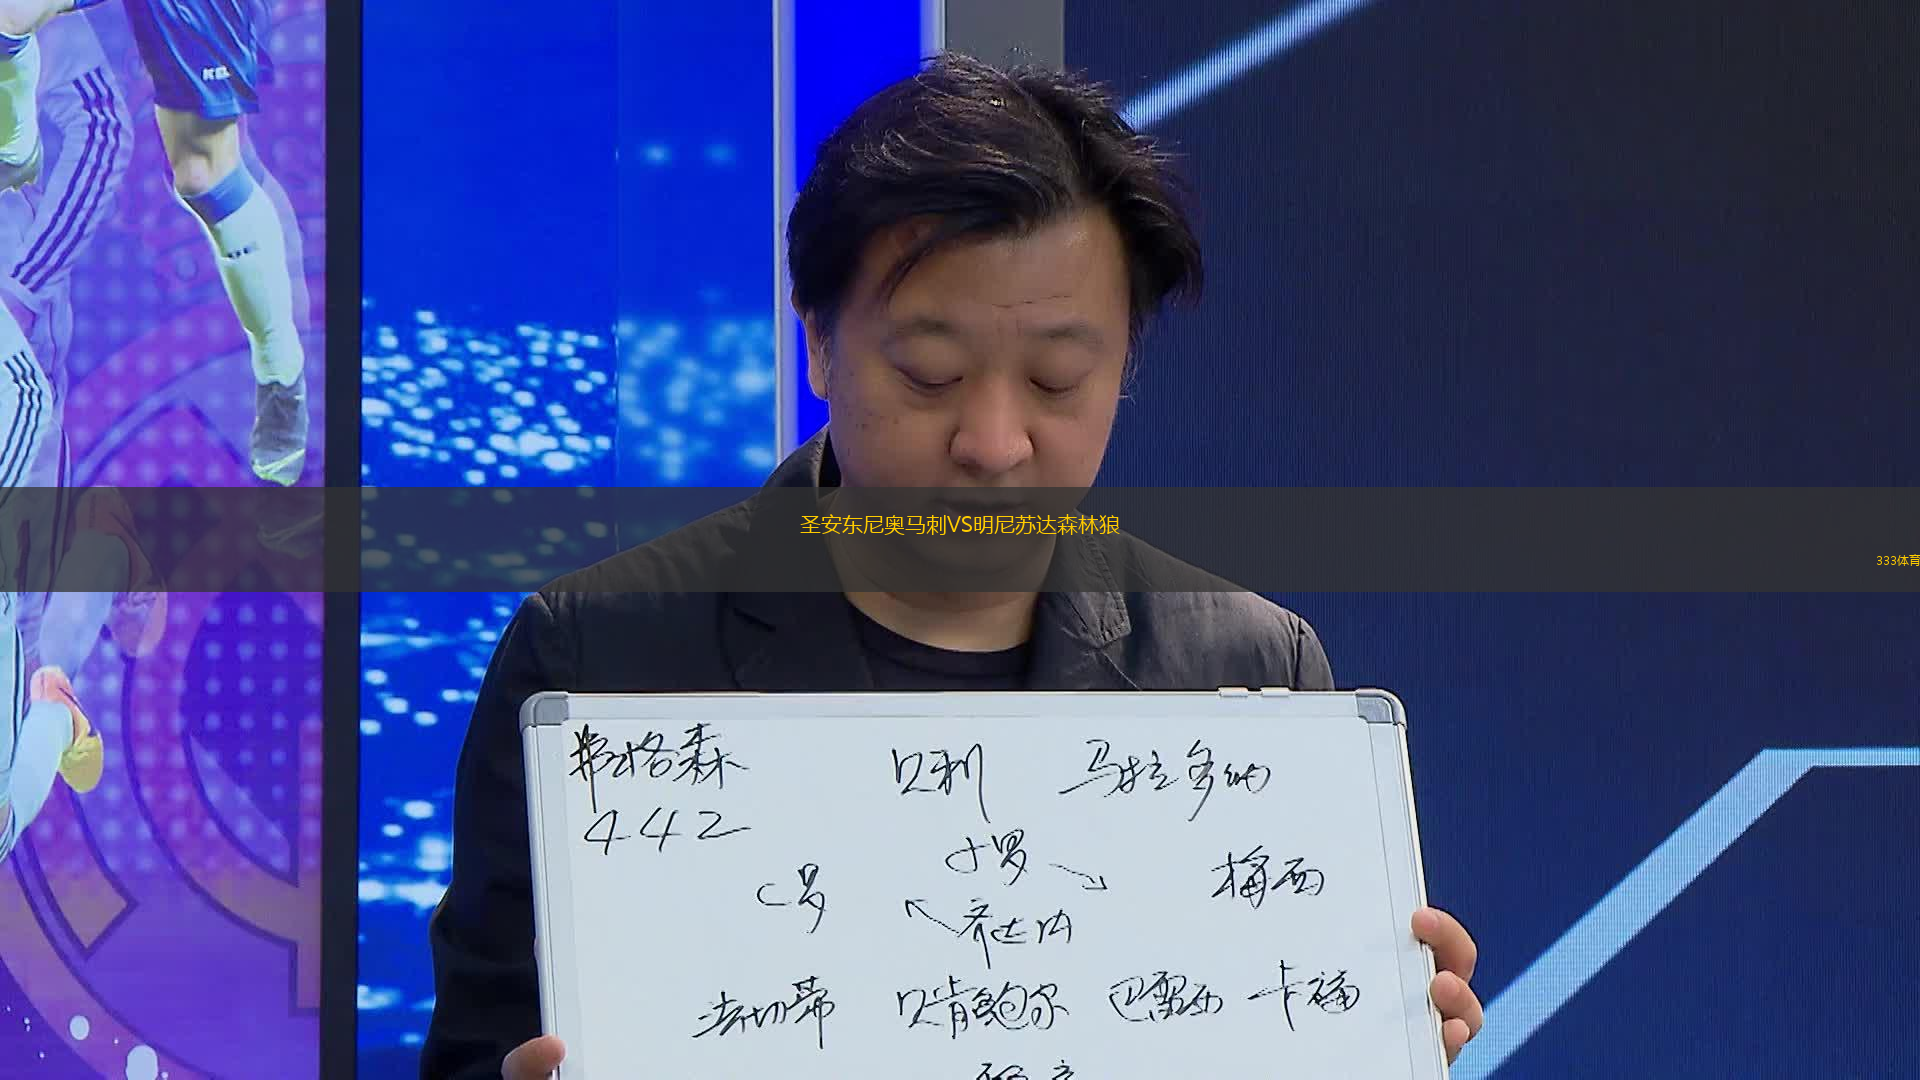 圣安东尼奥马刺VS明尼苏达森林狼
333体育
弗格森 贝利 马拉多纳
442
小罗
C罗 梅西
齐达内
法切蒂 贝肯鲍尔 巴雷西 卡福